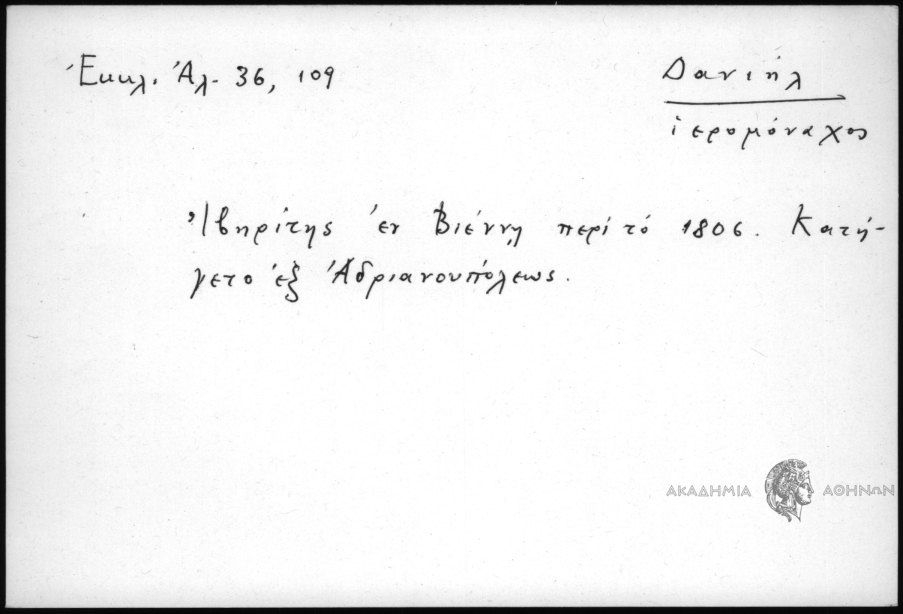 Ἐκκλ. Ἀλ. 36, 109
Δανιήλ
ἱερομόναχος
Ἰβηρίτης ἐν Βιέννῃ περί τό 1806. Κατή-
γετο ἐξ Ἀδριανουπόλεως.
ΑΚΑΔΗΜΙΑ ΑΘΗΝΩΝ